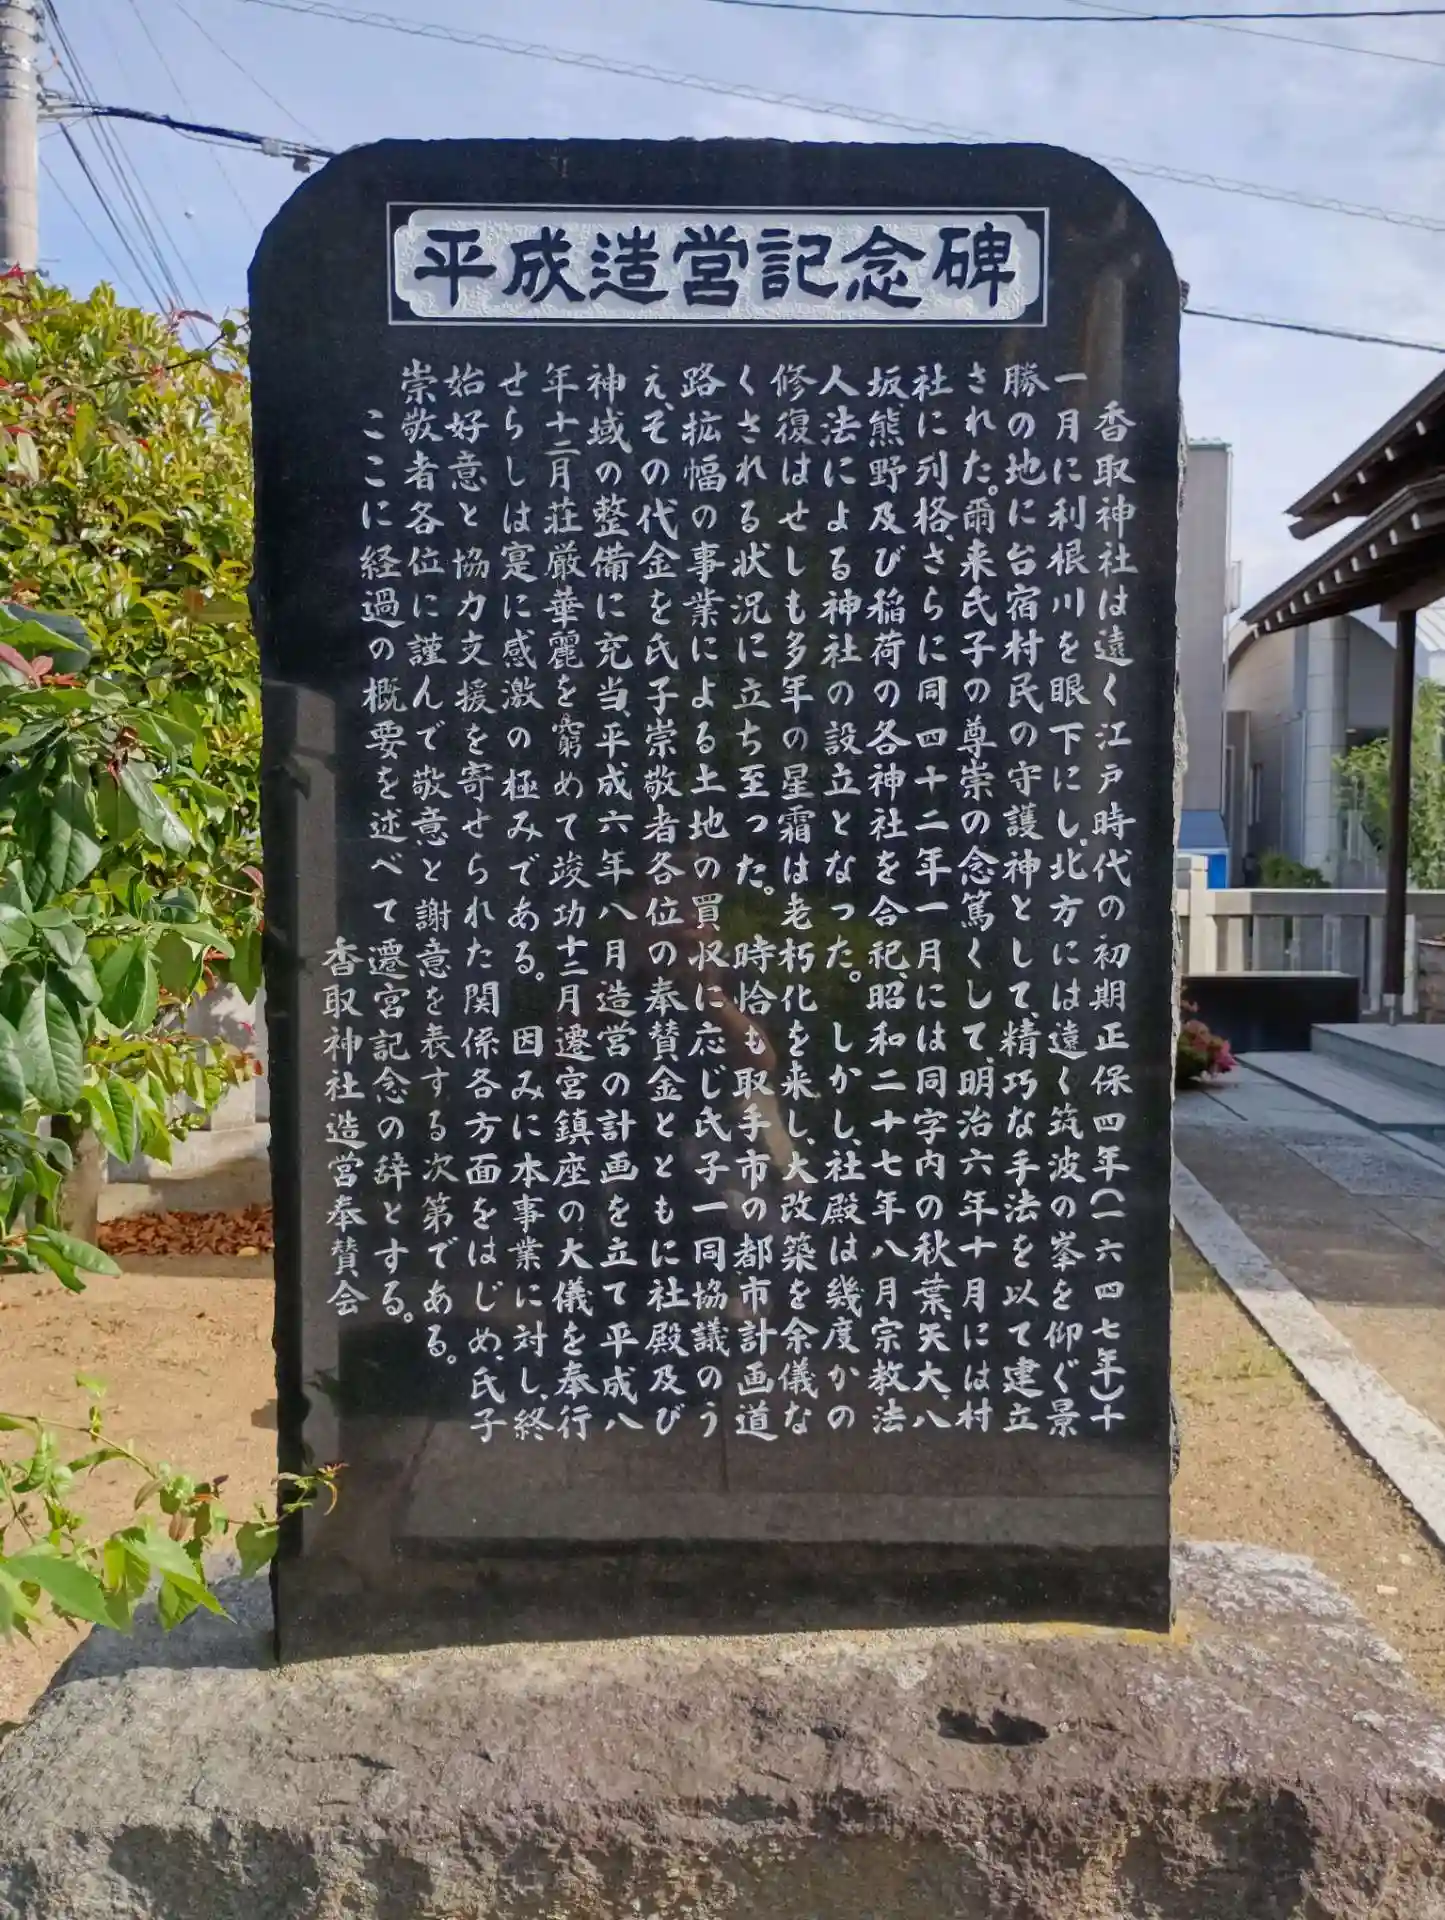 平成造営記念碑
香取神社は遠く江戸時代の初期正保四年(一六四七年)十
一月に利根川を眼下にし、北方には遠く筑波の峯を仰ぐ景
勝の地に台宿村民の守護神として、精巧な手法を以て建立
された。爾来氏子の尊崇の念篤くして、明治六年十月には村
社に列格、さらに同四十二年一月には同字内の秋葉、矢大、八
坂熊野及び稲荷の各神社を合祀、昭和二十七年八月宗教法
人法による神社の設立となった。しかし、社殿は幾度かの
修復はせしも多年の星霜は老朽化を来し、大改築を余儀な
くされる状況に立ち至った。時恰も取手市の都市計画道
路拡幅の事業による土地の買収に応じ氏子一同協議のう
え、その代金を氏子崇敬者各位の奉賛金とともに社殿及び
神域の整備に充当、平成六年八月造営の計画を立て平成八
年十二月荘厳華麗を窮めて竣功十二月遷宮鎮座の大儀を奉行
せらしは寔に感激の極みである。因みに本事業に対し、終
始好意と協力支援を寄せられた関係各方面をはじめ、氏子
崇敬者各位に謹んで敬意と謝意を表する次第である。
ここに経過の概要を述べて遷宮記念の辞とする。
香取神社造営奉賛会